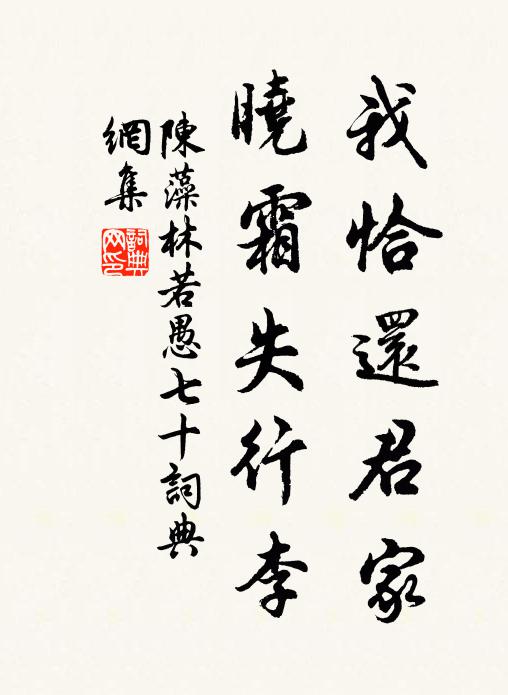 我恰還君家
曉霜失行李
陳藻林若愚七十詞典
網集
詞典網印